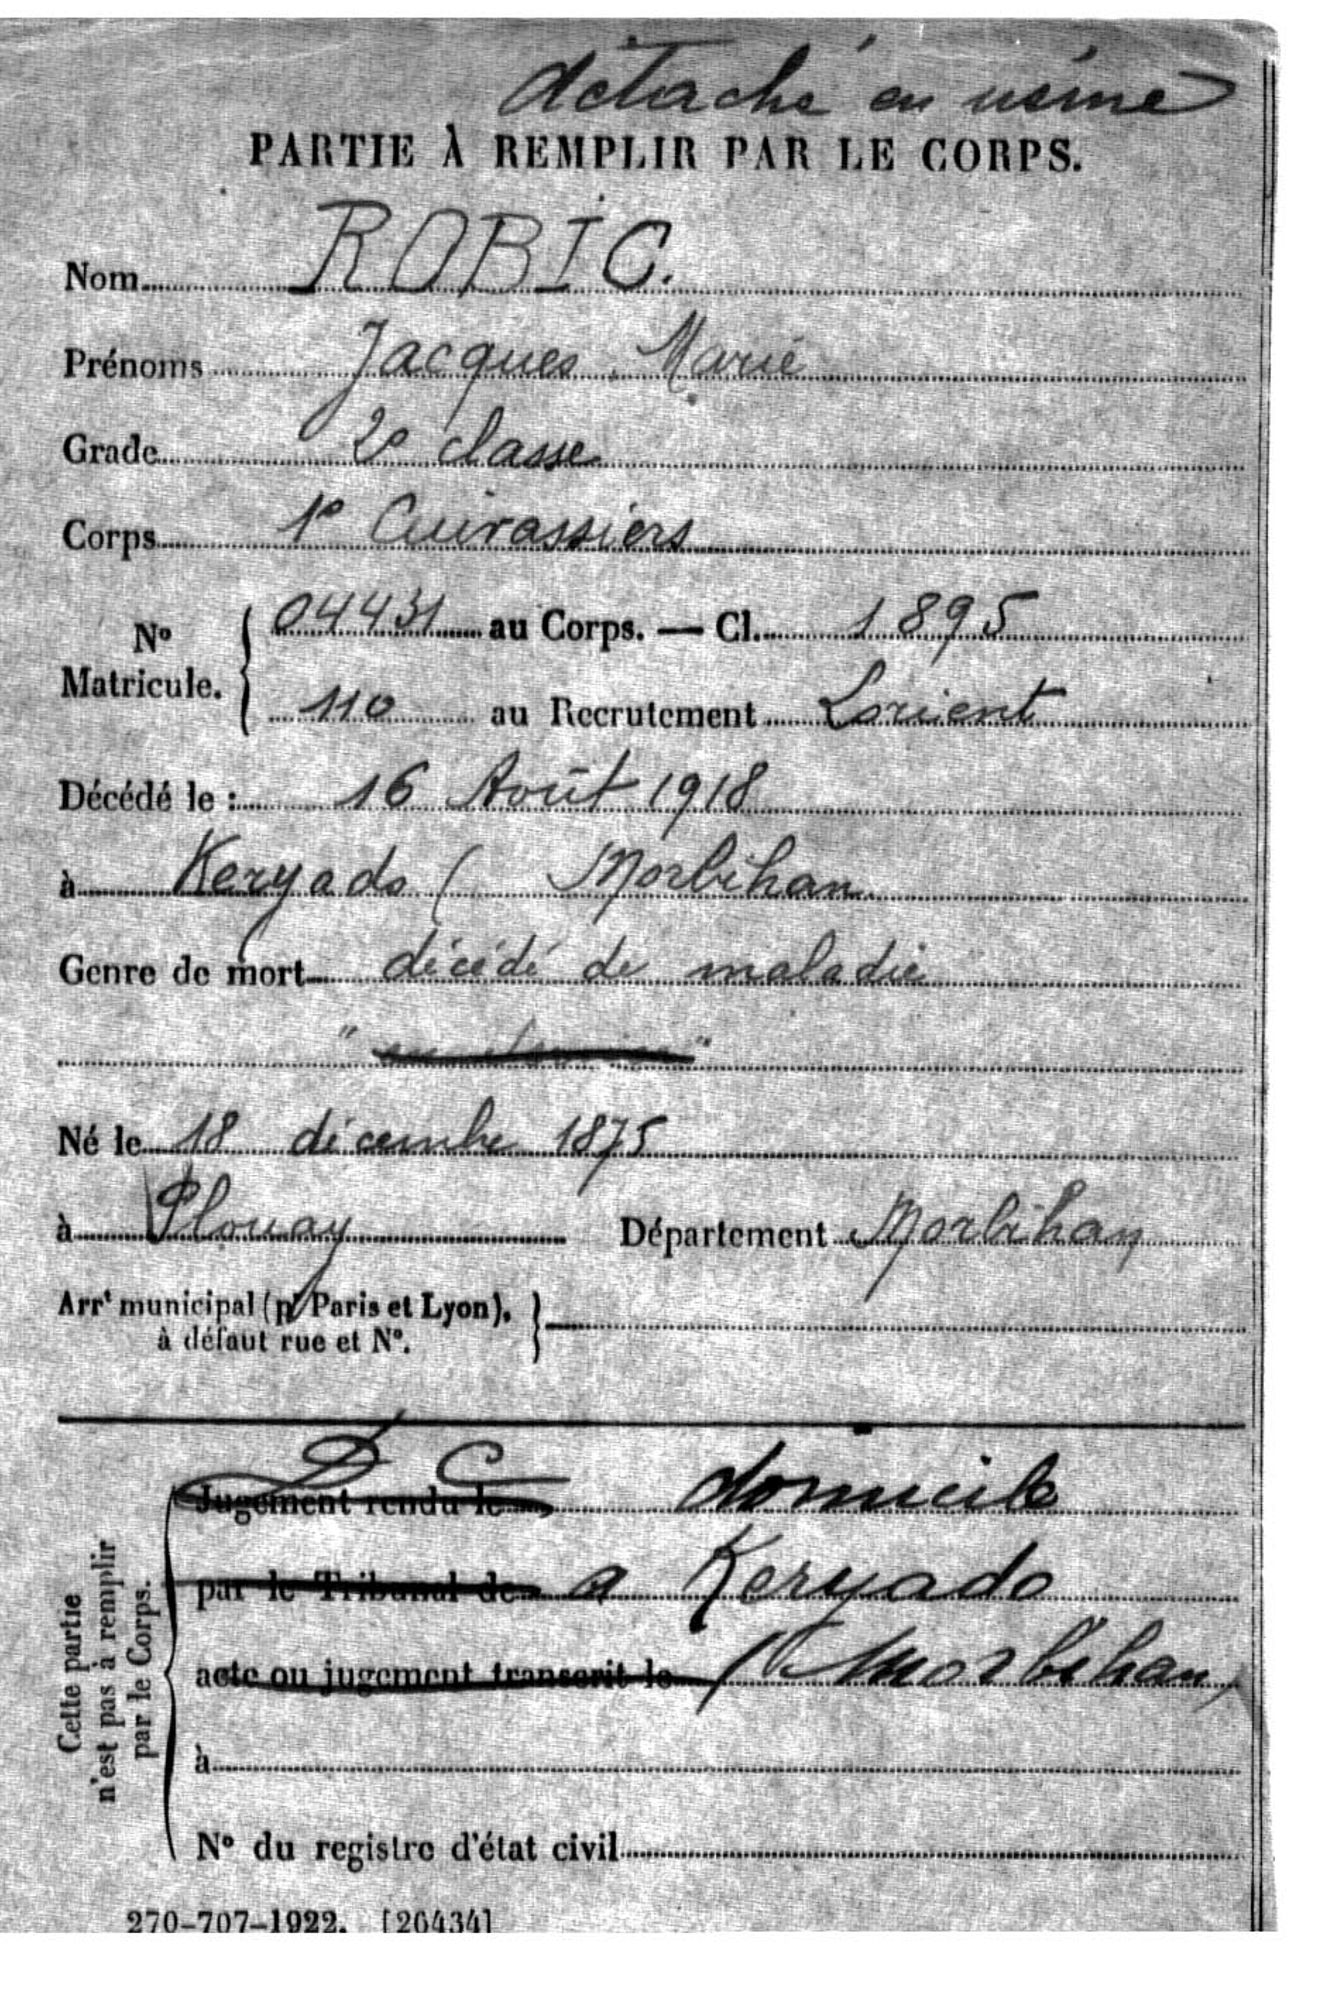 détaché en usine
PARTIE À REMPLIR PAR LE CORPS.
Nom ROBIC.
Prénoms Jacques Marie
Grade 2e classe
Corps 1e Cuirassiers
No Matricule. { 04431 au Corps. — Cl. 1895
110 au Recrutement Lorient
Décédé le : 16 Août 1918
à Keryado ( Morbihan
Genre de mort décédé de maladie
Né le 18 décembre 1875
à Plouay Département Morbihan
Arrt municipal (pr Paris et Lyon), }
à défaut rue et No.
D C
Jugement rendu le domicile
par le Tribunal de a Keryado
acte ou jugement transcrit le (Morbihan)
à
No du registre d'état civil
Cette partie
n'est pas à remplir
par le Corps.
270-707-1922. [26434]